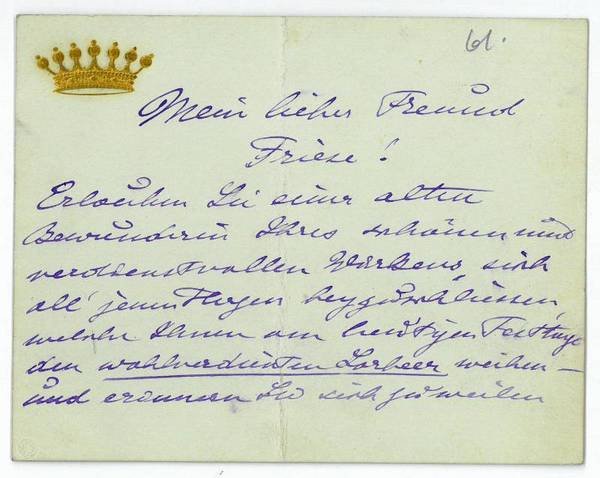 61.
Mein lieber Freund
Friese!
Erlauben Sie einer alten
Bewunderin Ihres schönen und
verdienstvollen Wirkens, sich
all' jenen beyzuschliessen,
welche Ihnen am heutigen Festtage
den wohlverdienten Lorbeer weihen —
und erinnern Sie sich zuweilen